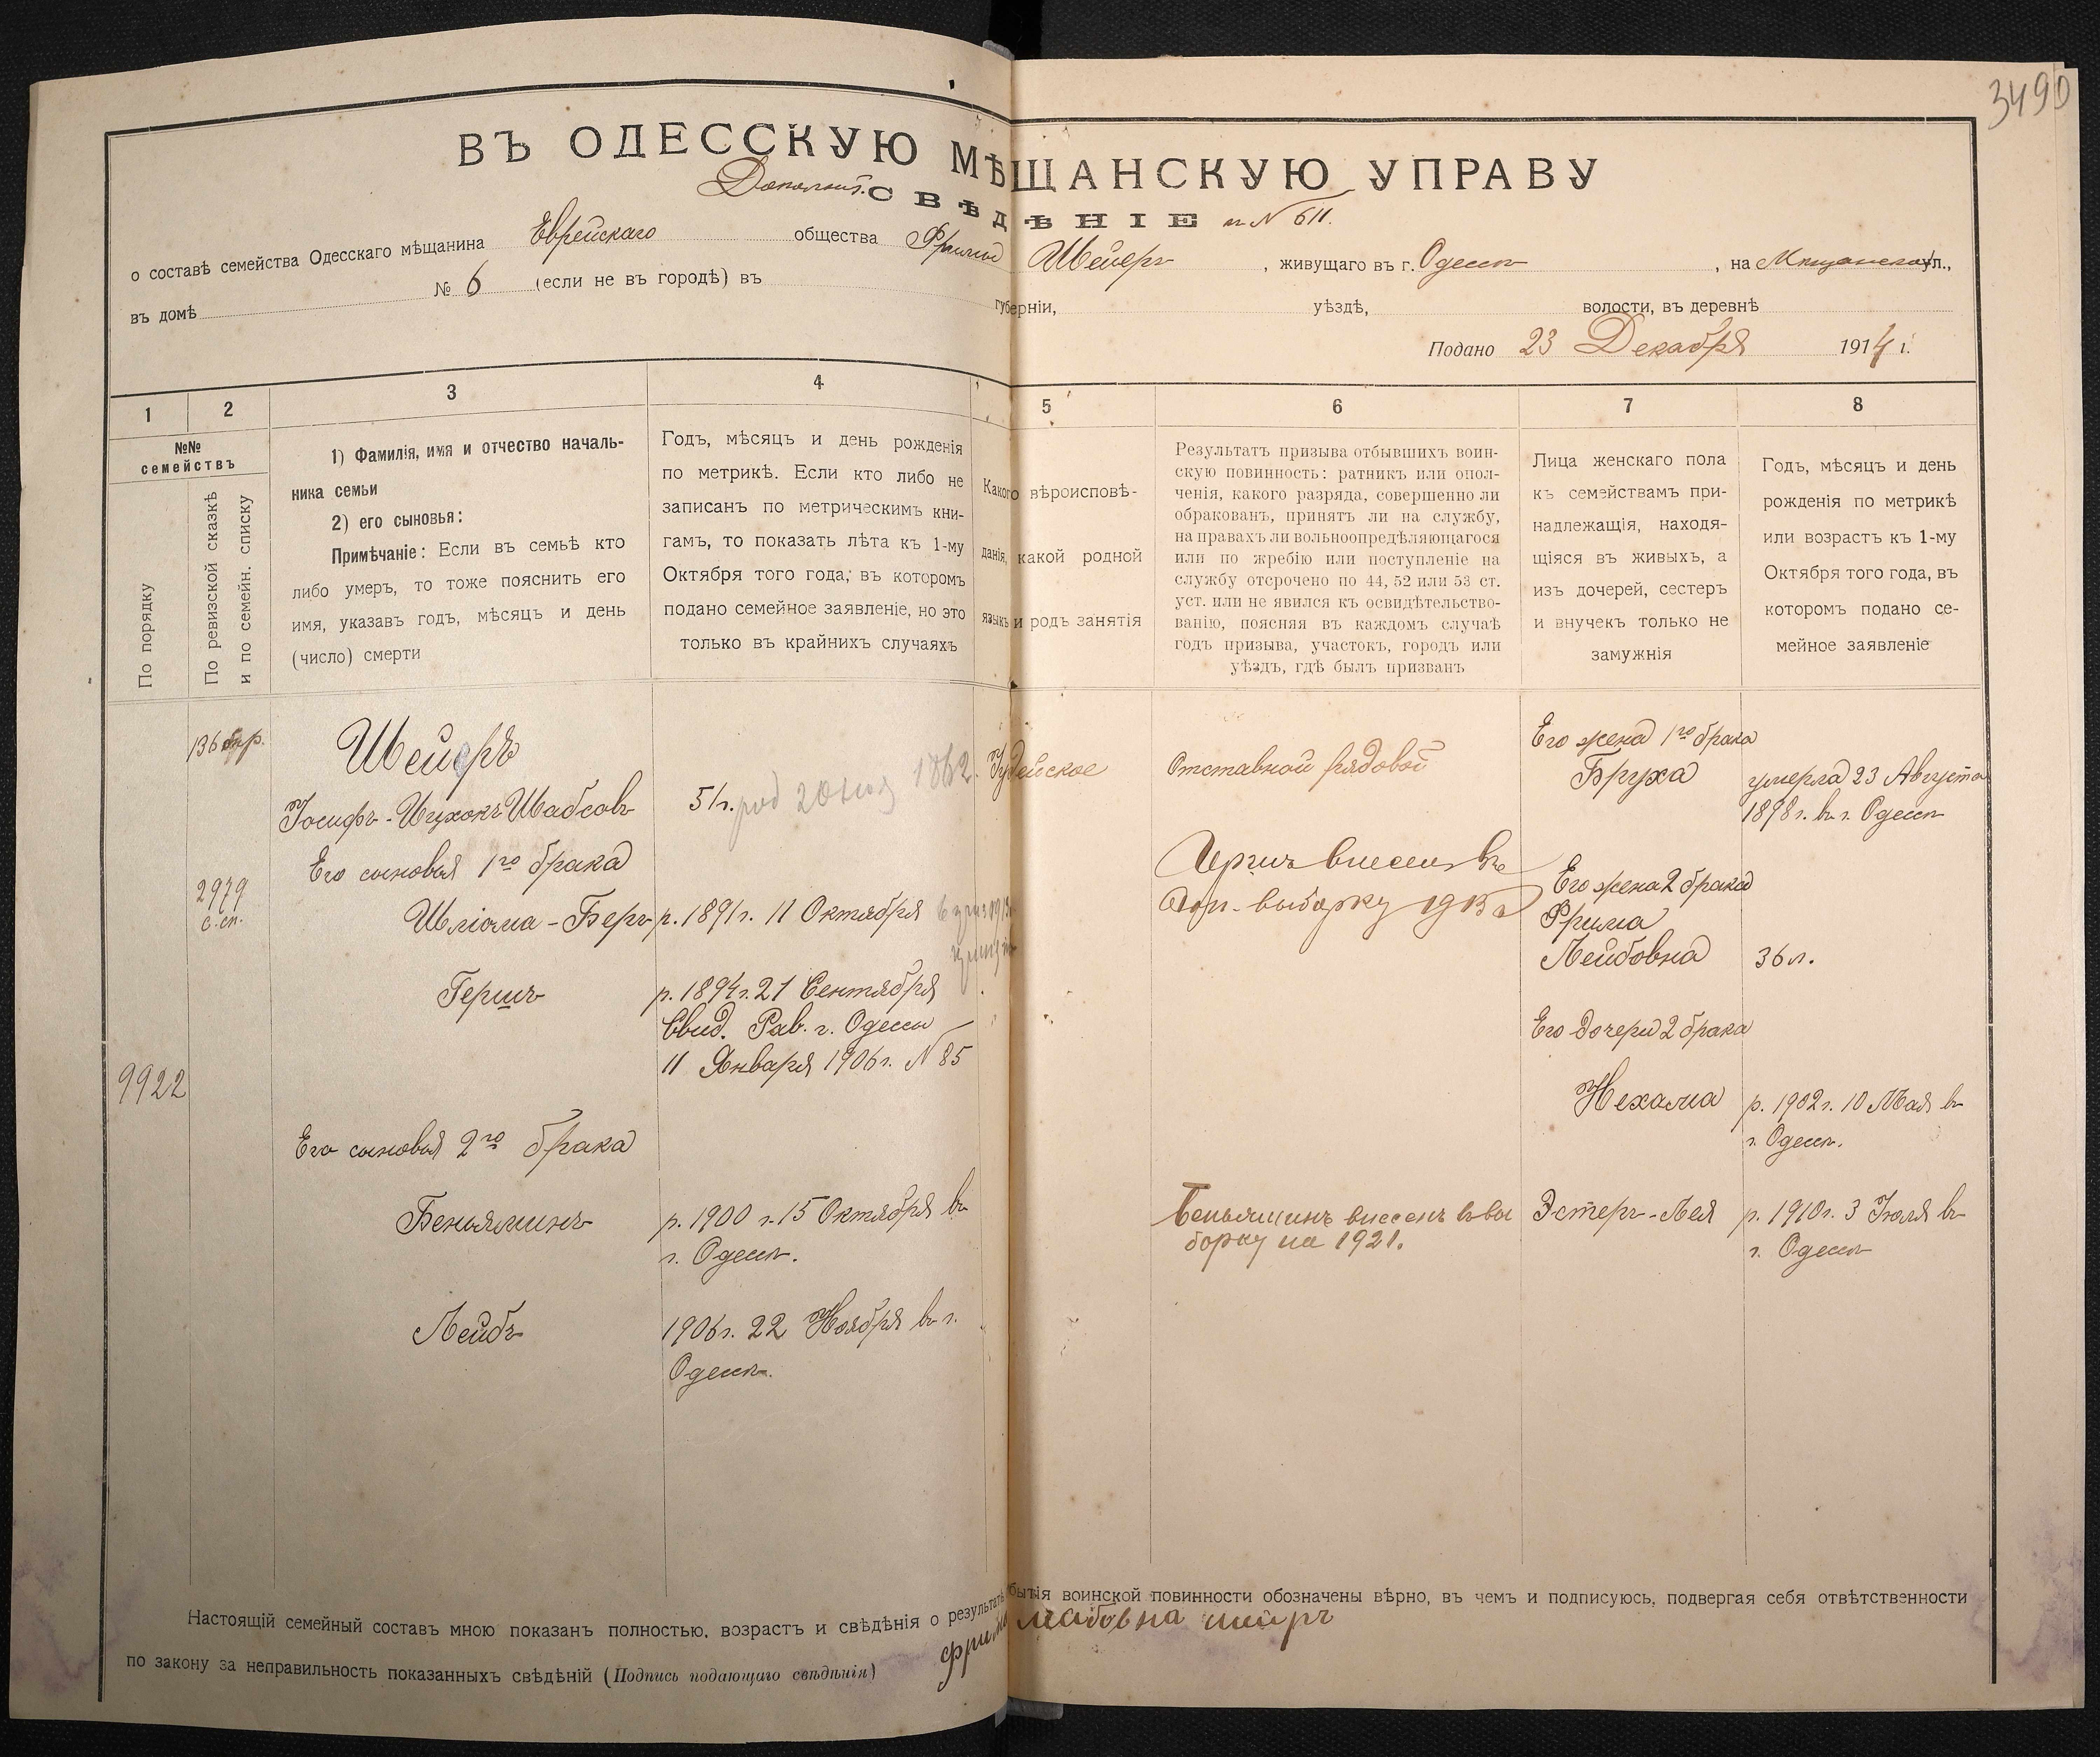 3490
ВЪ ОДЕССКУЮ МѢЩАНСКУЮ УПРАВУ
Дополнит. СВѢДѢНІЕ къ № 611.
о составѣ семейства Одесскаго мѣщанина Еврейскаго общества Фримы Шейеръ, живущаго въ г. Одессѣ, на Мѣщанской ул.,
въ домѣ № 6 (если не въ городѣ) въ губерніи, уѣздѣ, волости, въ деревнѣ
Подано 23 Декабря 1914 г.
1
2
3
4
5
6
7
8
№№
семействъ
По порядку
По ревизской сказкѣ
и по семейн. списку
1) Фамилія, имя и отчество началь-
ника семьи
2) его сыновья:
Примѣчаніе: Если въ семьѣ кто
либо умеръ, то тоже пояснить его
имя, указавъ годъ, мѣсяцъ и день
(число) смерти
Годъ, мѣсяцъ и день рожденія
по метрикѣ. Если кто либо не
записанъ по метрическимъ кни-
гамъ, то показать лѣта къ 1-му
Октября того года, въ которомъ
подано семейное заявленіе, но это
только въ крайнихъ случаяхъ
Какого вѣроисповѣ-
данія, какой родной
языкъ и родъ занятія
Результатъ призыва отбывшихъ воин-
скую повинность: ратникъ или опол-
ченія, какого разряда, совершенно ли
обракованъ, принятъ ли на службу,
на правахъ ли вольноопредѣляющагося
или по жребію или поступленіе на
службу отсрочено по 44, 52 или 53 ст.
уст. или не явился къ освидѣтельство-
ванію, поясняя въ каждомъ случаѣ
годъ призыва, участокъ, городъ или
уѣздъ, гдѣ былъ призванъ
Лица женскаго пола
къ семействамъ при-
надлежащія, находя-
щіяся въ живыхъ, а
изъ дочерей, сестеръ
и внучекъ только не
замужнія
Годъ, мѣсяцъ и день
рожденія по метрикѣ
или возрастъ къ 1-му
Октября того года, въ
которомъ подано се-
мейное заявленіе
136
Шейеръ
Іосифъ-Ицхокъ Шабсовъ
51 г. род 20 1862.
Іудейское
Отставной рядовой
Его жена 1го брака
Бруха
умерла 23 Августа
1898 г. въ г. Одессѣ
Его сыновья 1го брака
2979
с. сп.
Шліома-Беръ
р. 1891 г. 11 Октября
Гершъ внесенъ въ
доп. выборку 1915 г
Его жена 2 брака
Фрима
Лейбовна
36 л.
Гершъ
р. 1894 г. 21 Сентября
Свид. Рав. г. Одессы
11 Января 1906 г. № 85
Его дочери 2 брака
9922
Нехама
р. 1902 г. 10 Мая въ
г. Одессѣ.
Его сыновья 2го брака
Беньяминъ
р. 1900 г. 15 Октября въ
г. Одессѣ.
Беньяминъ внесенъ въ вы
борку на 1921.
Эстеръ-Лея
р. 1910 г. 3 Іюля въ
г. Одессѣ
Лейбъ
1906 г. 22 Ноября въ г.
Одессѣ.
Настоящій семейный составъ мною показанъ полностью, возрастъ и свѣдѣнія о результатѣ отбытія воинской повинности обозначены вѣрно, въ чемъ и подписуюсь, подвергая себя отвѣтственности
по закону за неправильность показанныхъ свѣдѣній (Подпись подающаго свѣдѣнія) фрима лабовна шеиръ